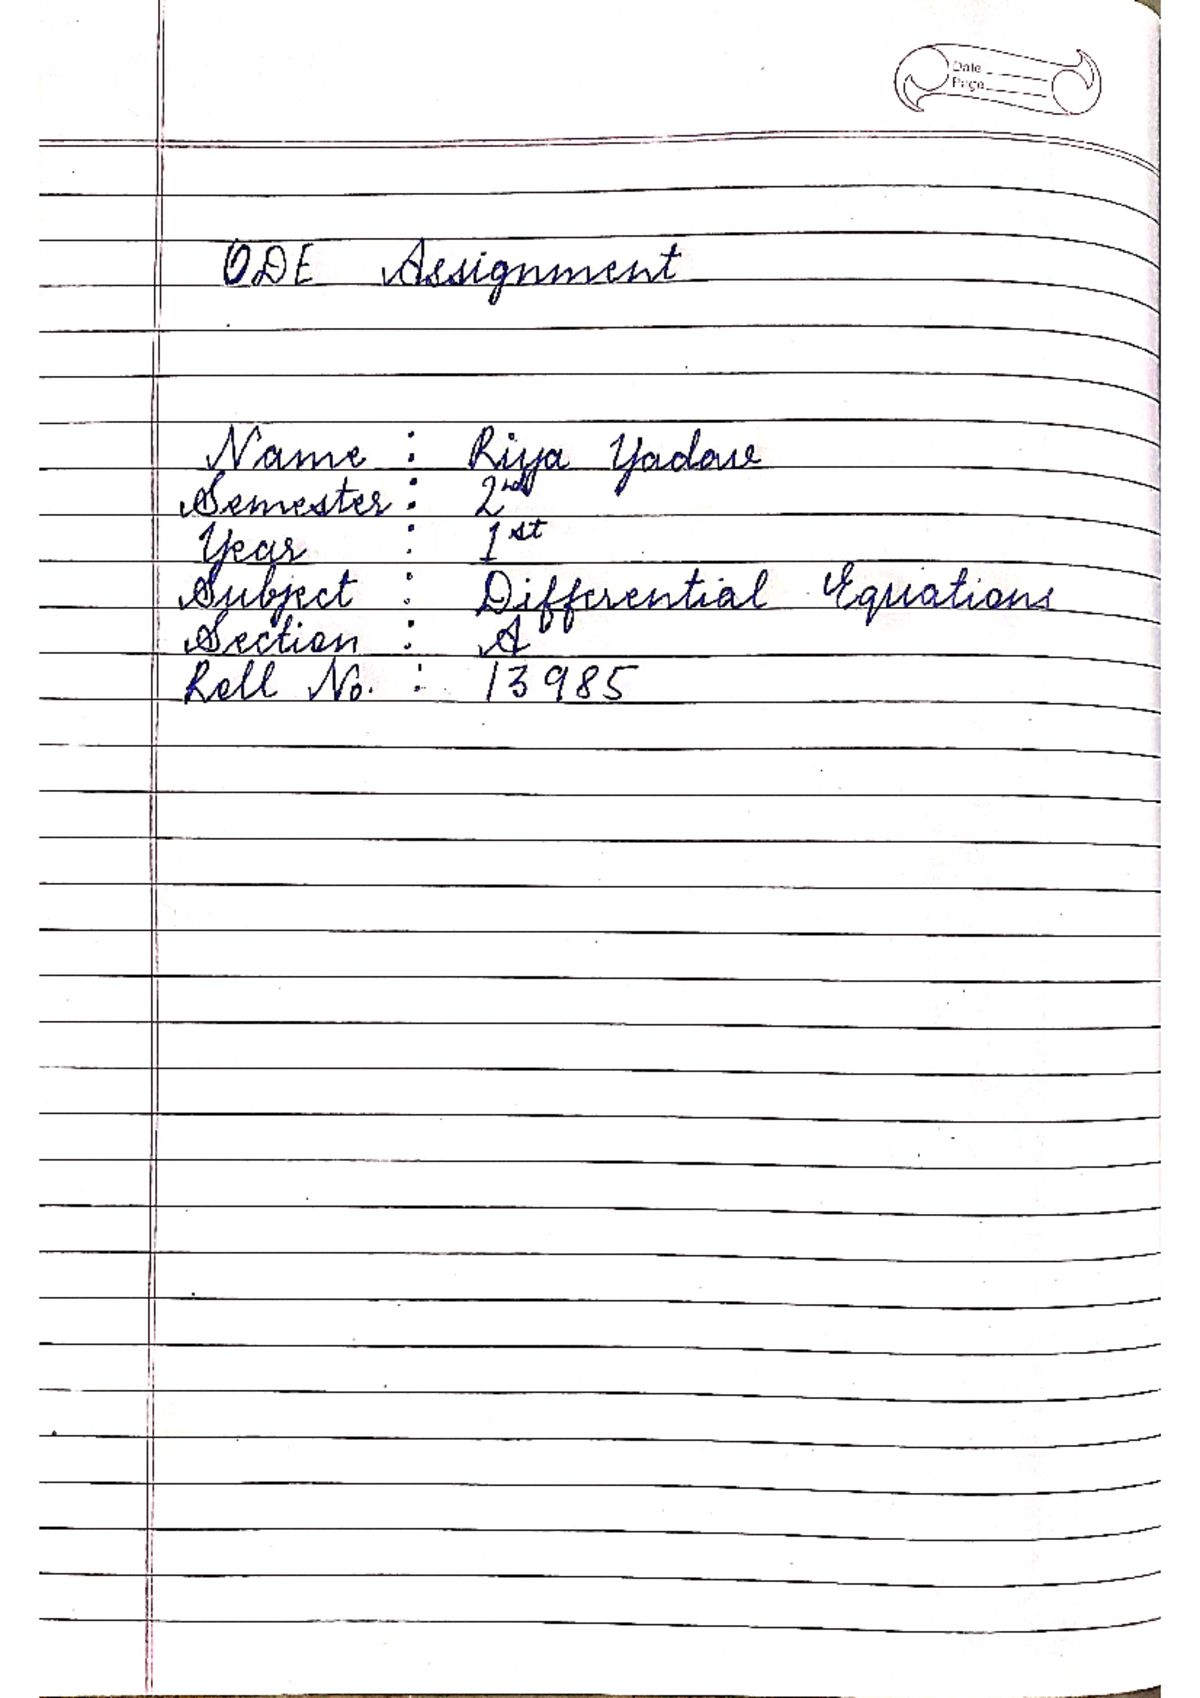 Date
Page
ODE Assignment
Name : Riya Yadav
Semester : 2nd
Year : 1st
Subject : Differential Equations
Section : A
Roll No. : 13985